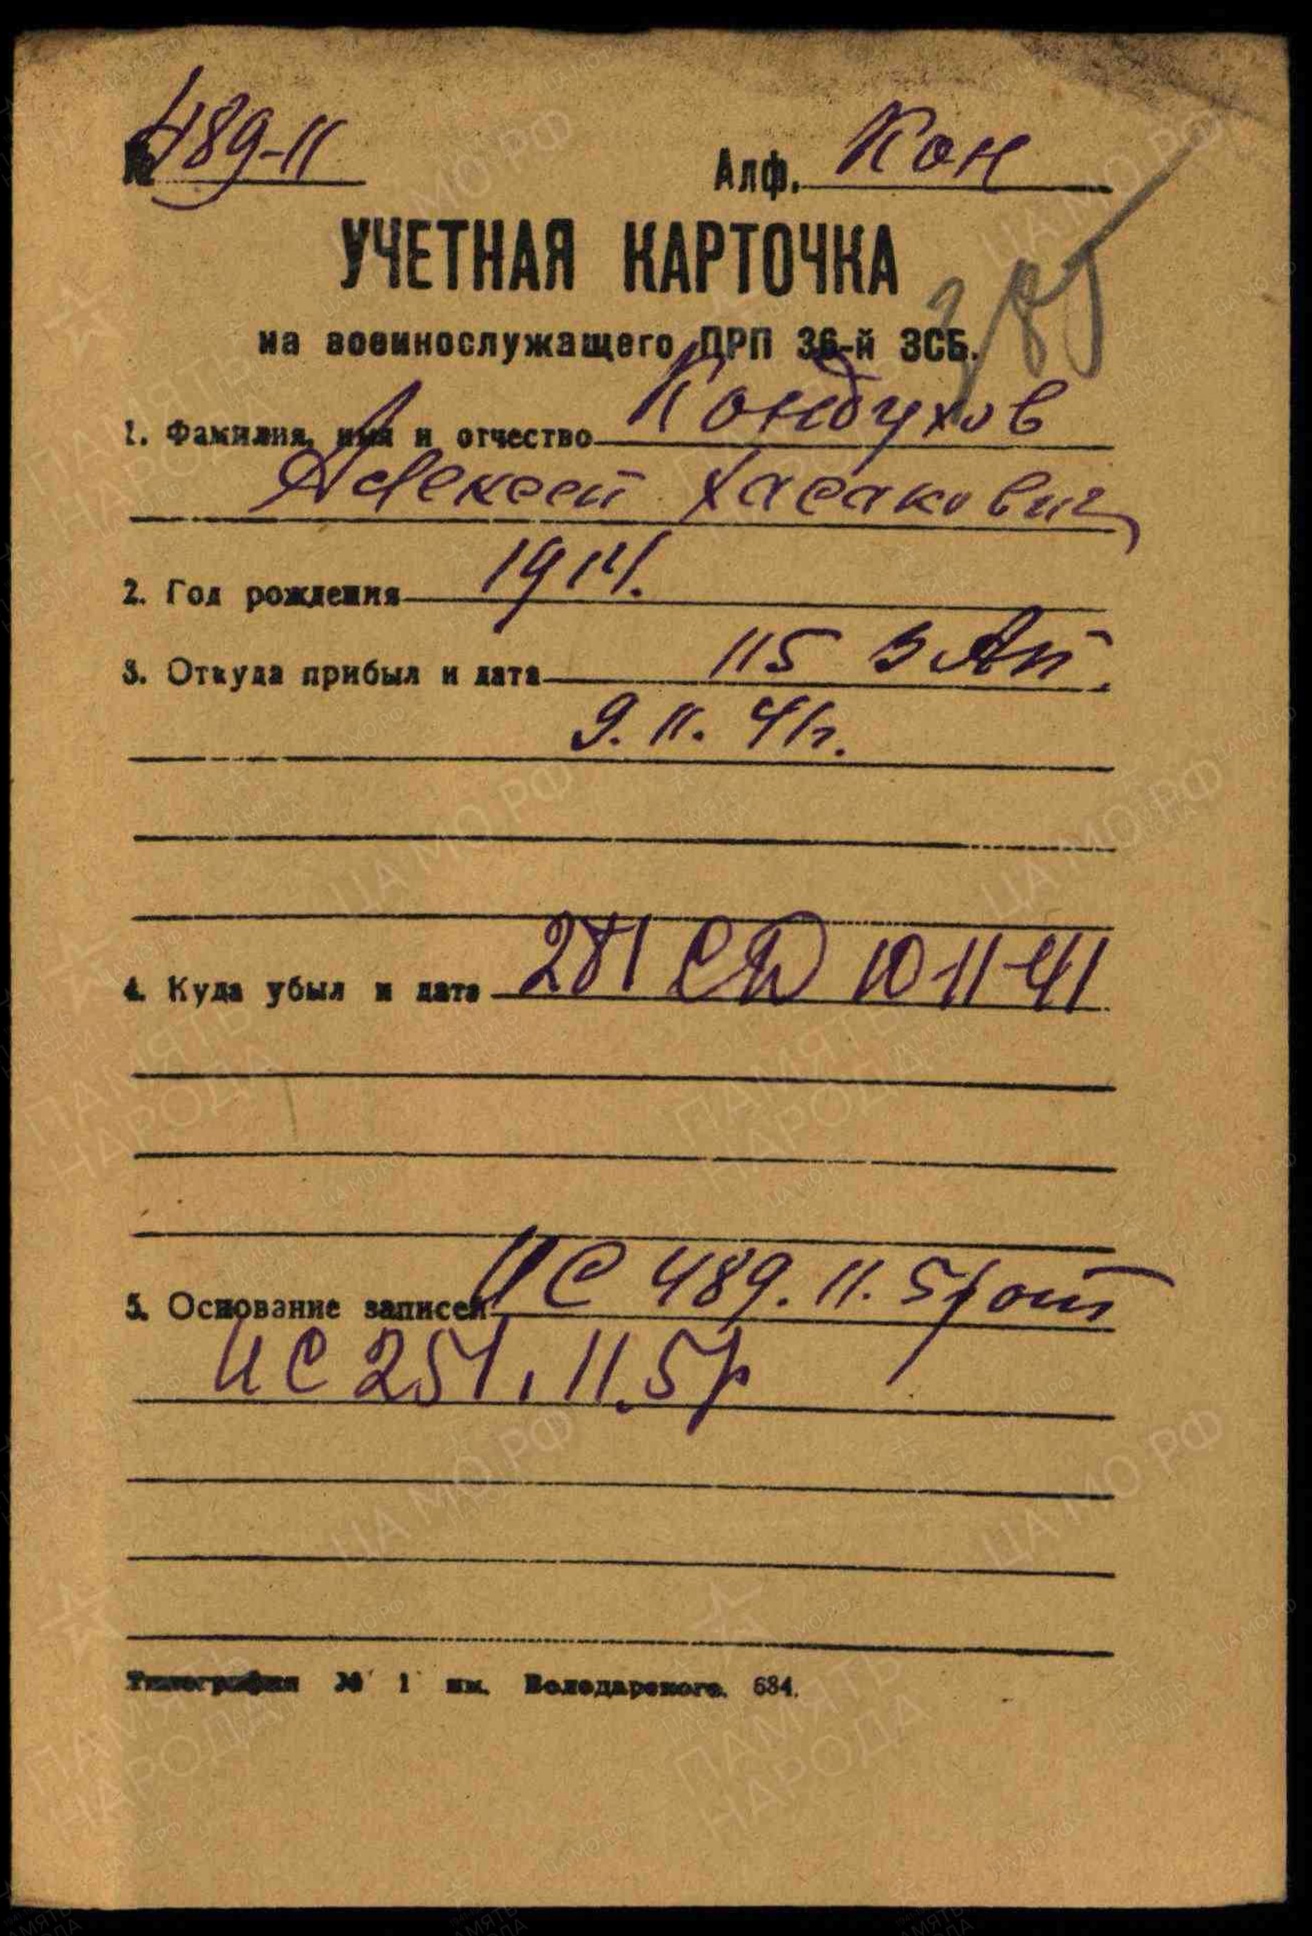 № 489-11 Алф. Кон
УЧЕТНАЯ КАРТОЧКА
на военнослужащего ПРП 36-й ЗСБ.
385
1. Фамилия, имя и отчество Кондухов
Алексей Хасакович
2. Год рождения 1914.
3. Откуда прибыл и дата 115 ЗАП.
9.11.41г.
4. Куда убыл и дата 281 СД 10-11-41
5. Основание записей ИС 489.11.5р от
ИС 251.11.5р
Типография № 1 им. Володарского. 684.
ПАМЯТЬ НАРОДА
ЦА МО РФ